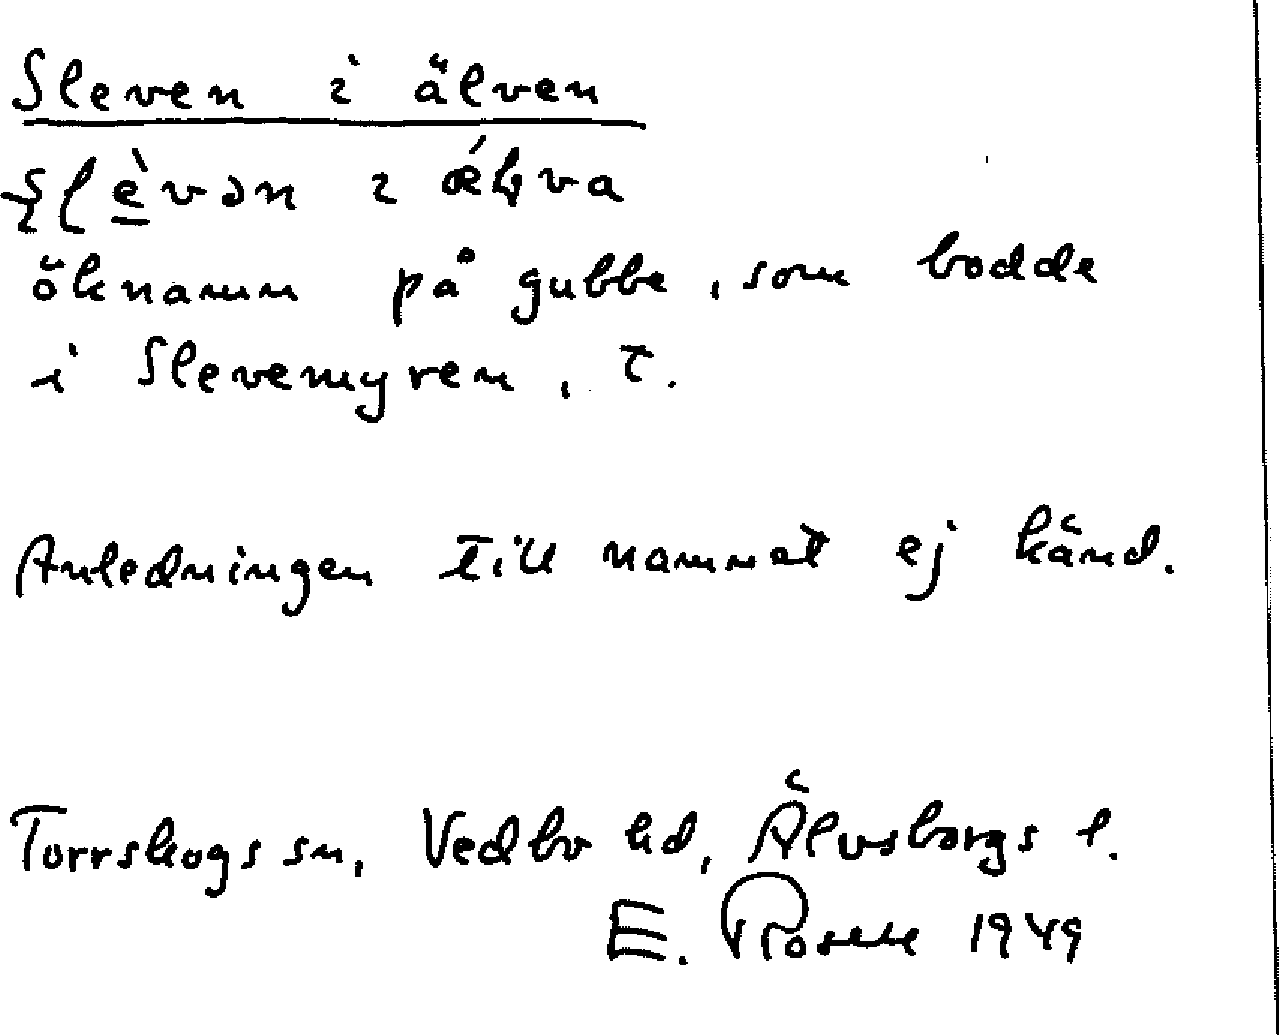 Sleven i älven
öknamn på gubbe, som bodde
i Slevemyren, T.
Anledningen till namnet ej känd.
Torrskogs sn, Vedbo hd, Älvsborgs l.
E. Rosell 1949